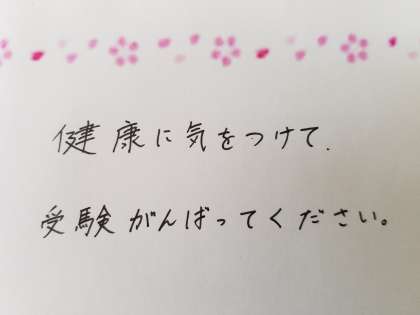 健康に気をつけて.
受験がんばってください。